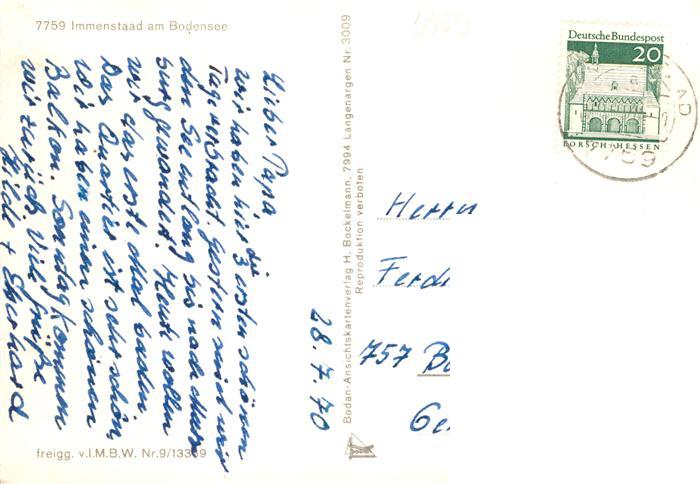 7759 Immenstaad am Bodensee
Lieber Papa
wir haben hier die 3 ersten schönen
Tage verbracht. Gestern sind wir
den See entlang bis nach Meers
burg gewandert. Heut wollen
wir das erste Mal baden.
Das Quartier ist sehr schön,
wir haben einen schönen
Balkon. Sonntag kommen
wir zurück. Viele Grüße
+ Eberhard
28.7.70
freigg. v.I.M.B.W. Nr.9/13369
Bodan-Ansichtskartenverlag H. Bockelmann, 7994 Langenargen Nr. 3009
Reproduktion verboten
Deutsche Bundespost
20
LORSCH/HESSEN
7759
Herrn
Ferdi
757 Ba
Ge